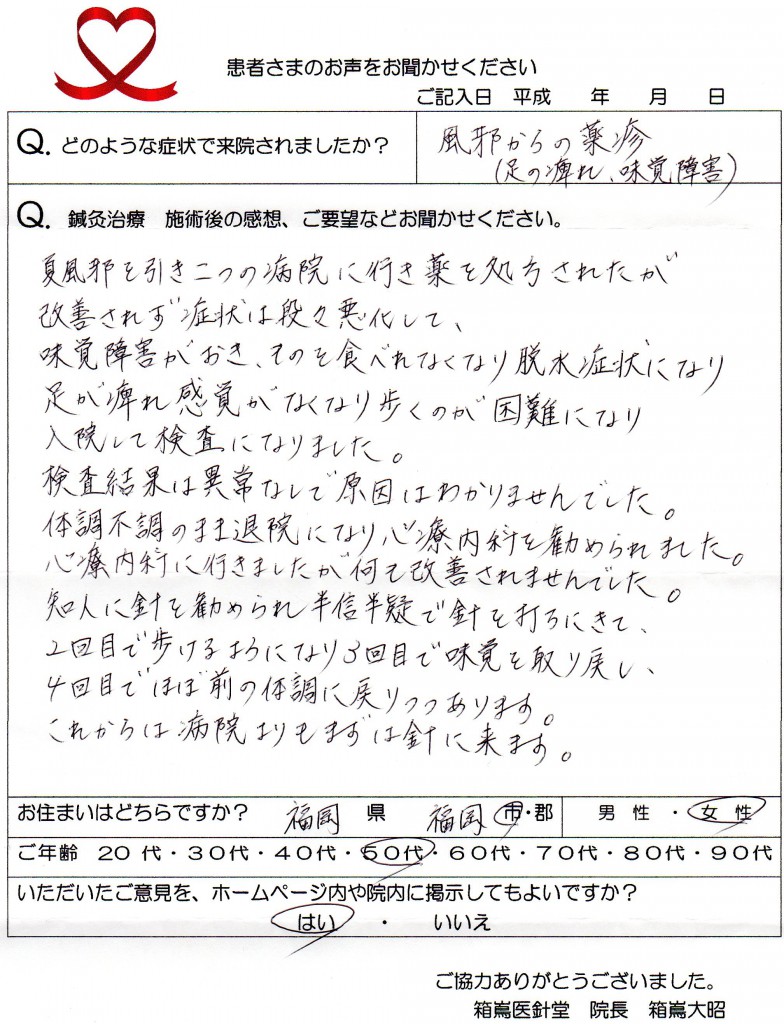 患者さまのお声をお聞かせください
ご記入日 平成 年 月 日
Q. どのような症状で来院されましたか？
風邪からの薬疹
(足の痺れ、味覚障害)
Q. 鍼灸治療 施術後の感想、ご要望などお聞かせください。
夏風邪を引き二つの病院に行き薬を処方されたが
改善されず症状は段々悪化して、
味覚障害がおき、そのそ食べれなくなり脱水症状になり
足が痺れ感覚がなくなり歩くのが困難になり
入院して検査になりました。
検査結果は異常なしで原因はわかりませんでした。
体調不調のまま退院になり心療内科を勧められました。
心療内科に行きましたが何も改善されませんでした。
知人に針を勧められ半信半疑で針を打ちにきて、
2回目で歩けるようになり3回目で味覚を取り戻し、
4回目でほぼ前の体調に戻りつつあります。
これからは病院よりもまずは針に来ます。
お住まいはどちらですか？ 福岡 県 福岡 市・郡 男性・女性
ご年齢 20代・30代・40代・50代・60代・70代・80代・90代
いただいたご意見を、ホームページ内や院内に掲示してもよいですか？
はい ・ いいえ
ご協力ありがとうございました。
箱嶌医針堂 院長 箱嶌大昭